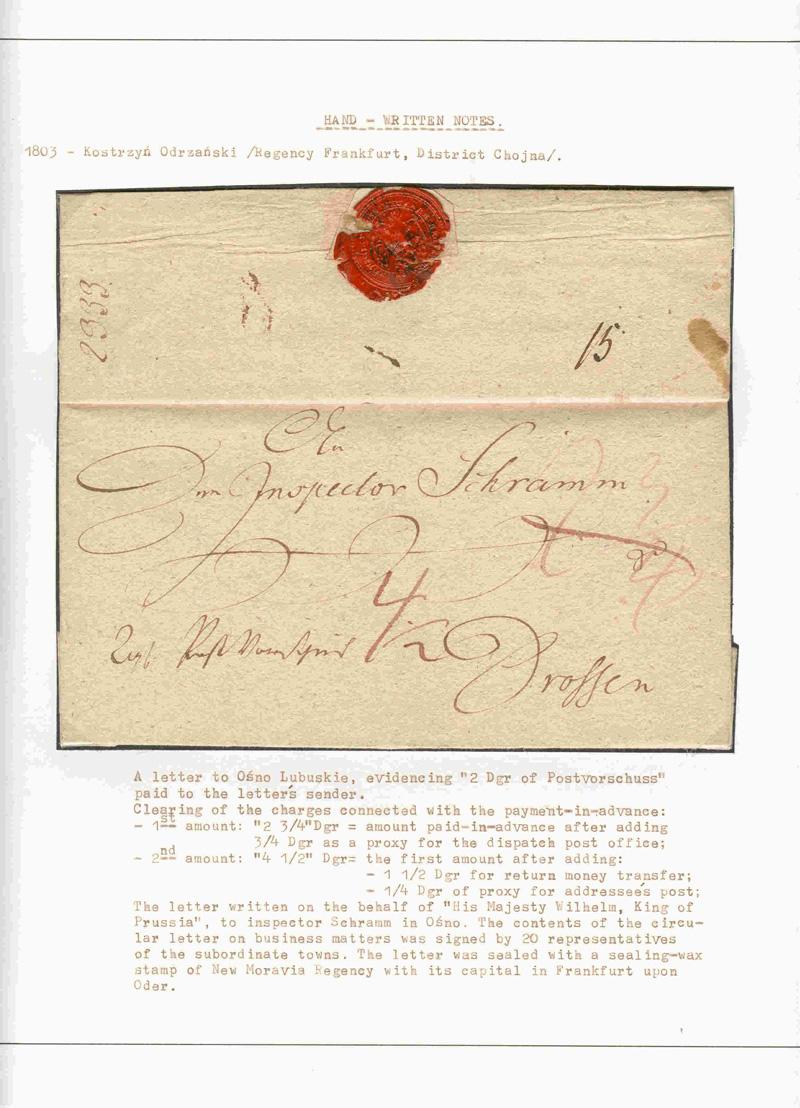 HAND - WRITTEN NOTES.
1803 - Kostrzyń Odrzański /Regency Frankfurt, District Chojna/.
2333
15
Inspector Schramm
4 1/2
Drossen
A letter to Ośno Lubuskie, evidencing "2 Dgr of Postvorschuss"
paid to the letter's sender.
Clearing of the charges connected with the payment-in-advance:
- 1st amount: "2 3/4"Dgr = amount paid-in-advance after adding
3/4 Dgr as a proxy for the dispatch post office;
- 2nd amount: "4 1/2" Dgr= the first amount after adding:
- 1 1/2 Dgr for return money transfer;
- 1/4 Dgr of proxy for addressee's post;
The letter written on the behalf of "His Majesty Wilhelm, King of
Prussia", to inspector Schramm in Ośno. The contents of the circu-
lar letter on business matters was signed by 20 representatives
of the subordinate towns. The letter was sealed with a sealing-wax
stamp of New Moravia Regency with its capital in Frankfurt upon
Oder.